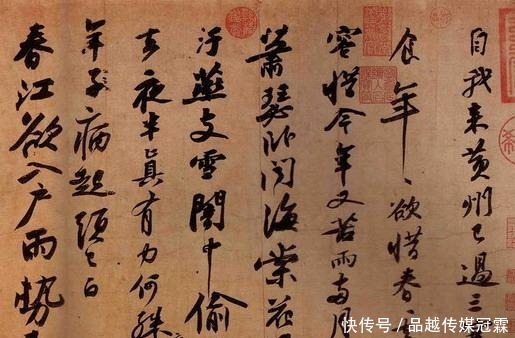 自我来黄州已过三
食年〻欲惜春
容惜今年又苦雨两月
萧瑟卧闻海棠花
汙燕支雪闇中偷
去夜半真有力何殊
年子病起须已白
春江欲入户雨势
快传号／品越传媒冠霖